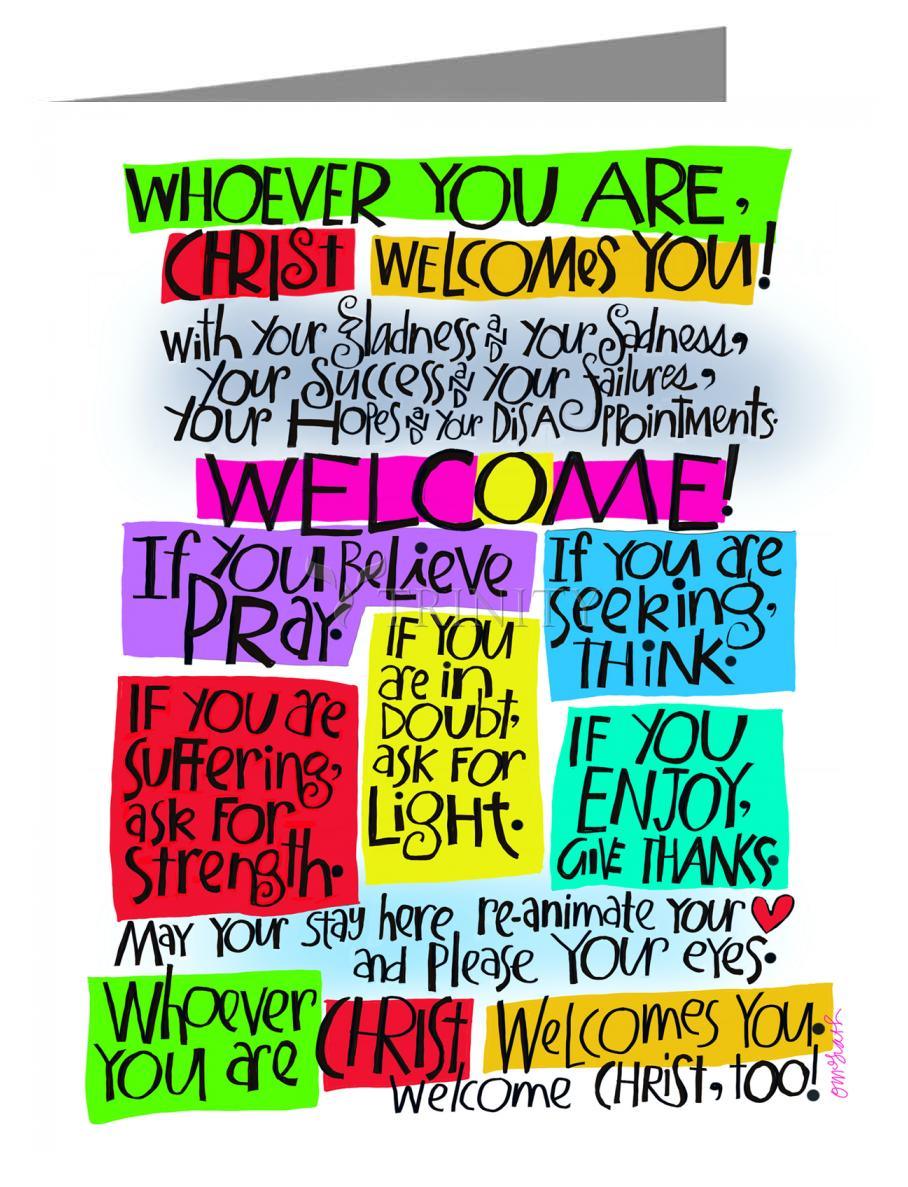 WHOEVER YOU ARE,
CHRIST WELCOMES YOU!
With Your Gladness and Your Sadness,
Your Success and Your failures,
Your Hopes and Your DisAppointments.
WELCOME!
If You Believe
PRay.
If You are
seeking,
THiNK.
IF YOU
are in
DOUbt,
ask FOR
Light.
IF YOU are
Suffering,
ask For
Strength.
IF YOU
ENJOY,
GIVE THANKS.
May Your stay here re-animate Your ♥
and Please Your eyes.
Whoever
You are
CHRIST
Welcomes You.
Welcome CHRiST, too!
TRINITY